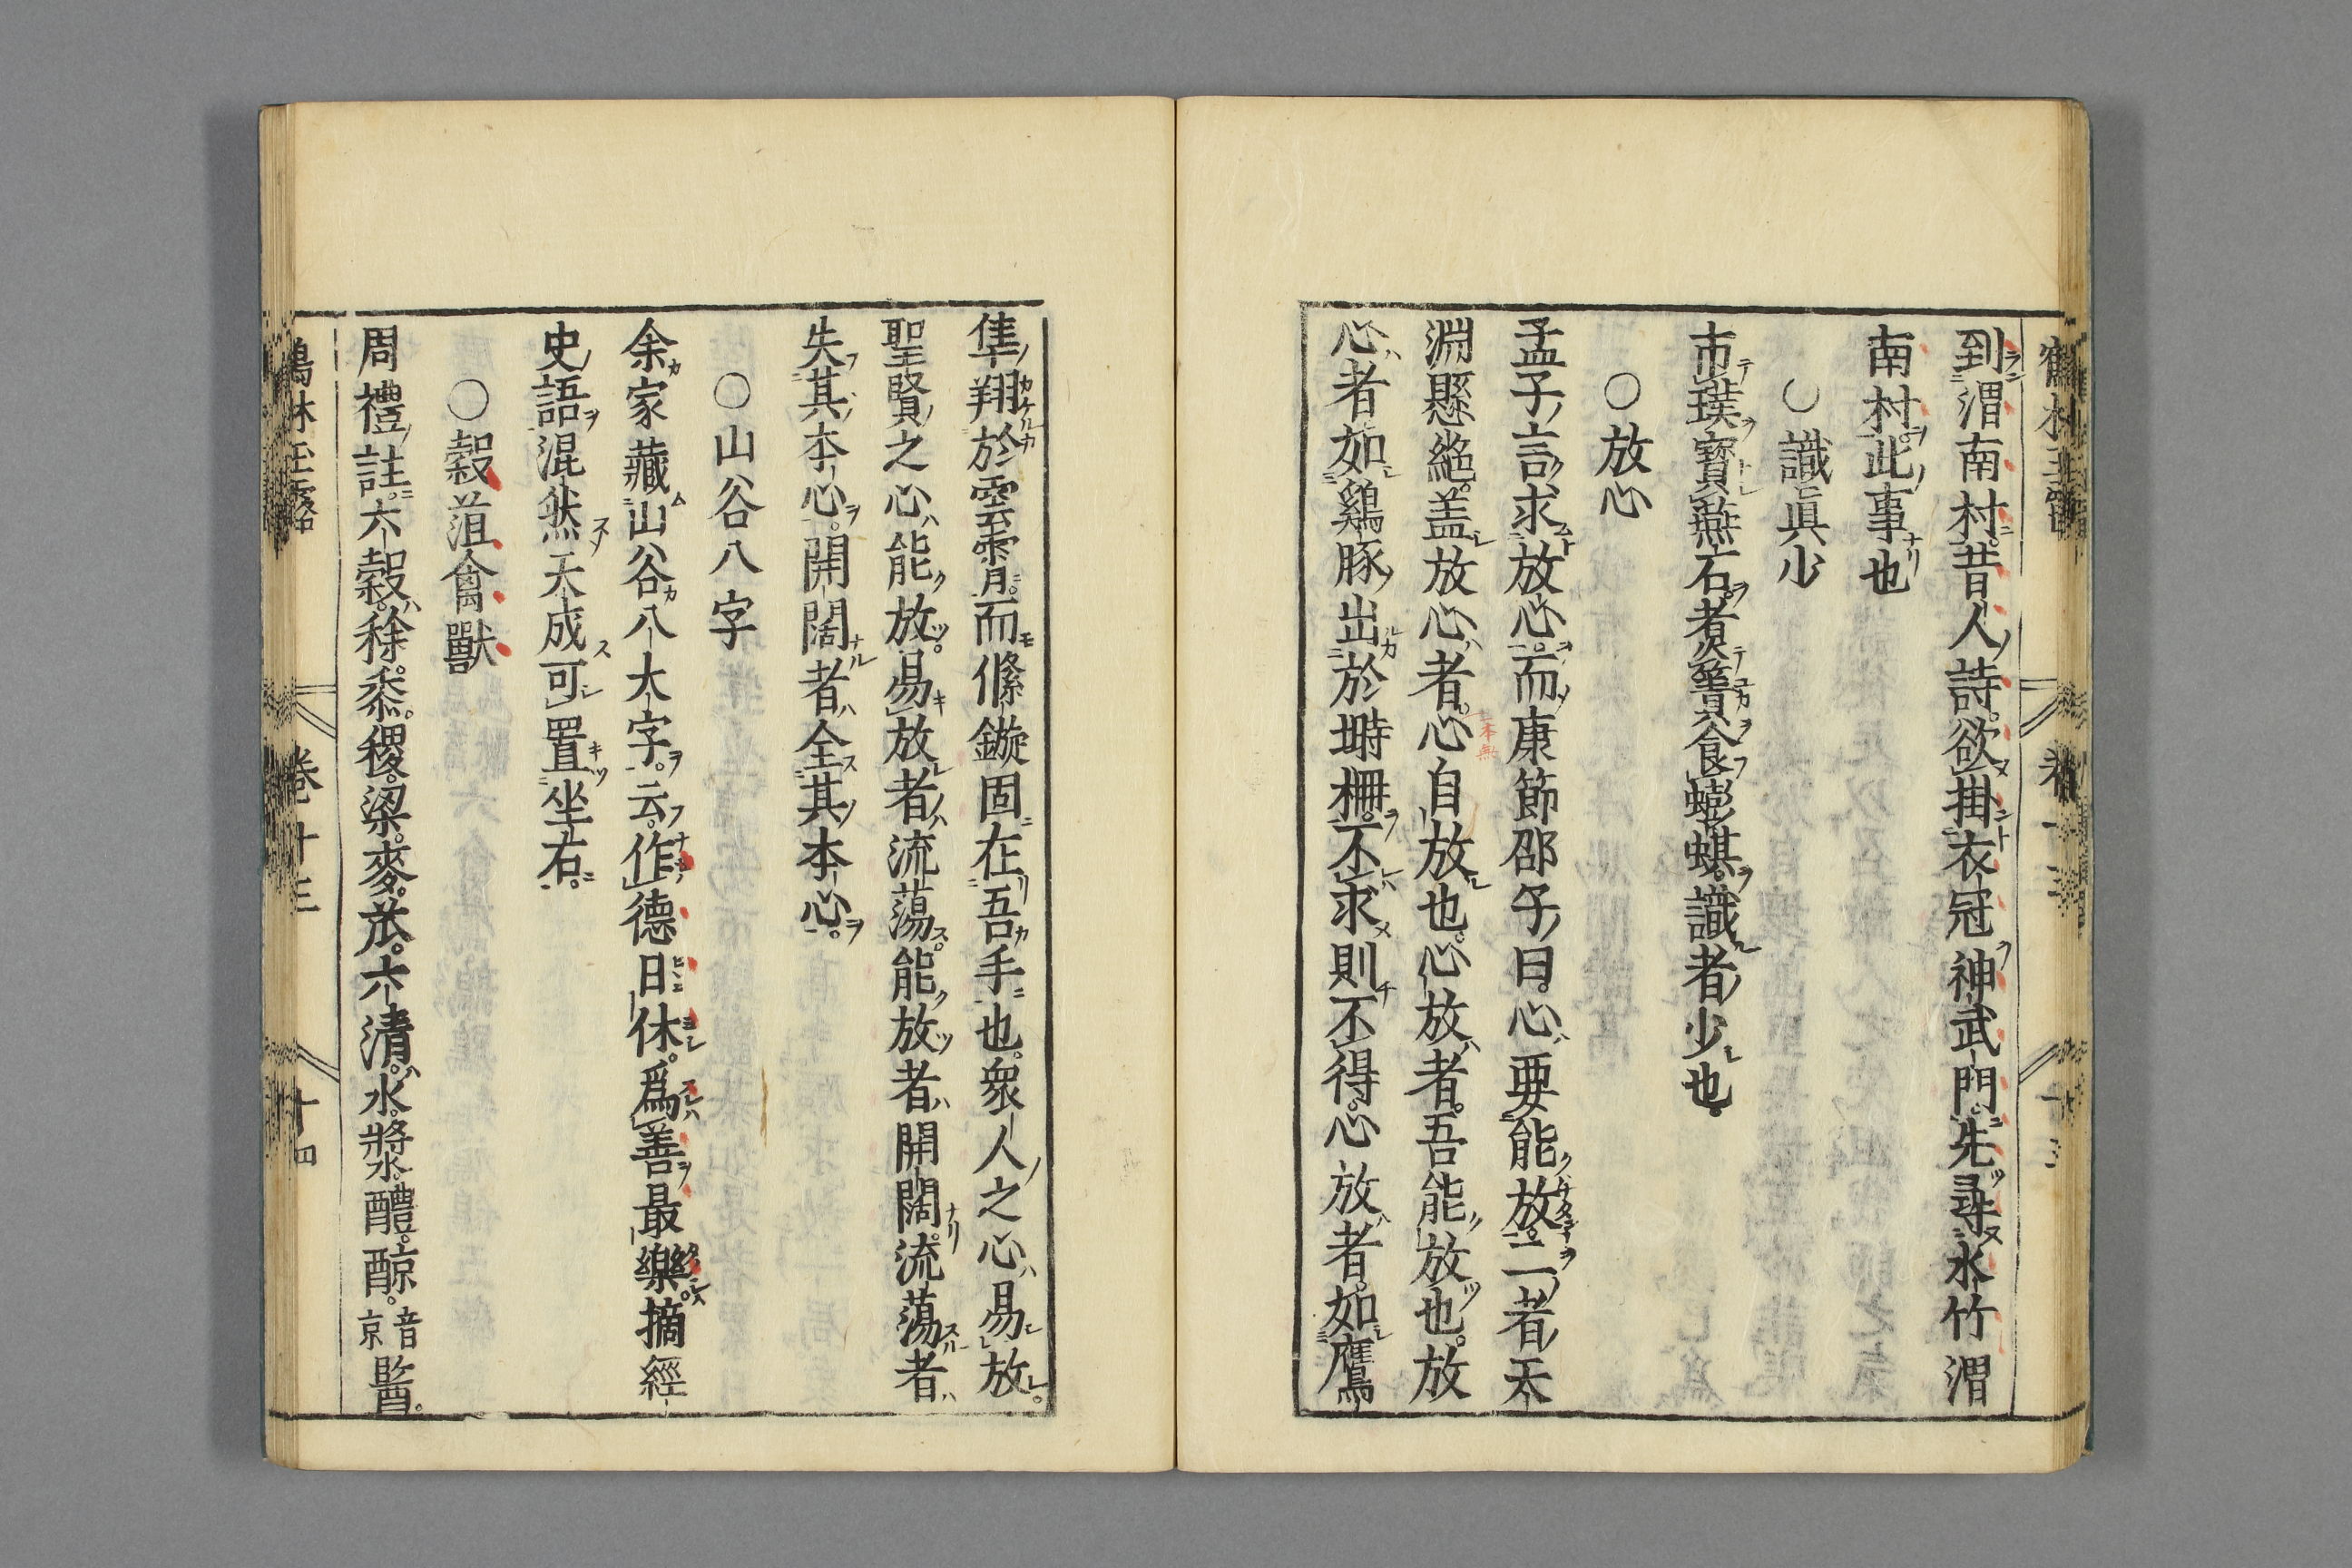 到渭南村昔人詩欲掛衣冠神武門先尋水竹渭
南村此事也
○識眞少
市璞寶燕石者煮簀食蟛蜞識者少也
○放心
孟子言求放心而康節邵子曰心要能放二者天
淵懸絕盖放心者心自放也心放者吾能放也放
心者如鷄豚出於塒柵不求則不得心放者如鷹
隼翔於雲霄而絛鏇固在吾手也衆人之心易放
聖賢之心能放易放者流蕩能放者開闊流蕩者
失其本心開闊者全其本心
○山谷八字
余家藏山谷八大字云作德日休爲善最樂摘經
史語混然天成可置坐右
○穀菹禽獸
周禮註六穀稌黍稷梁麥苽六清水漿醴䣼音京醫
鶴林玉露 卷十三 十四